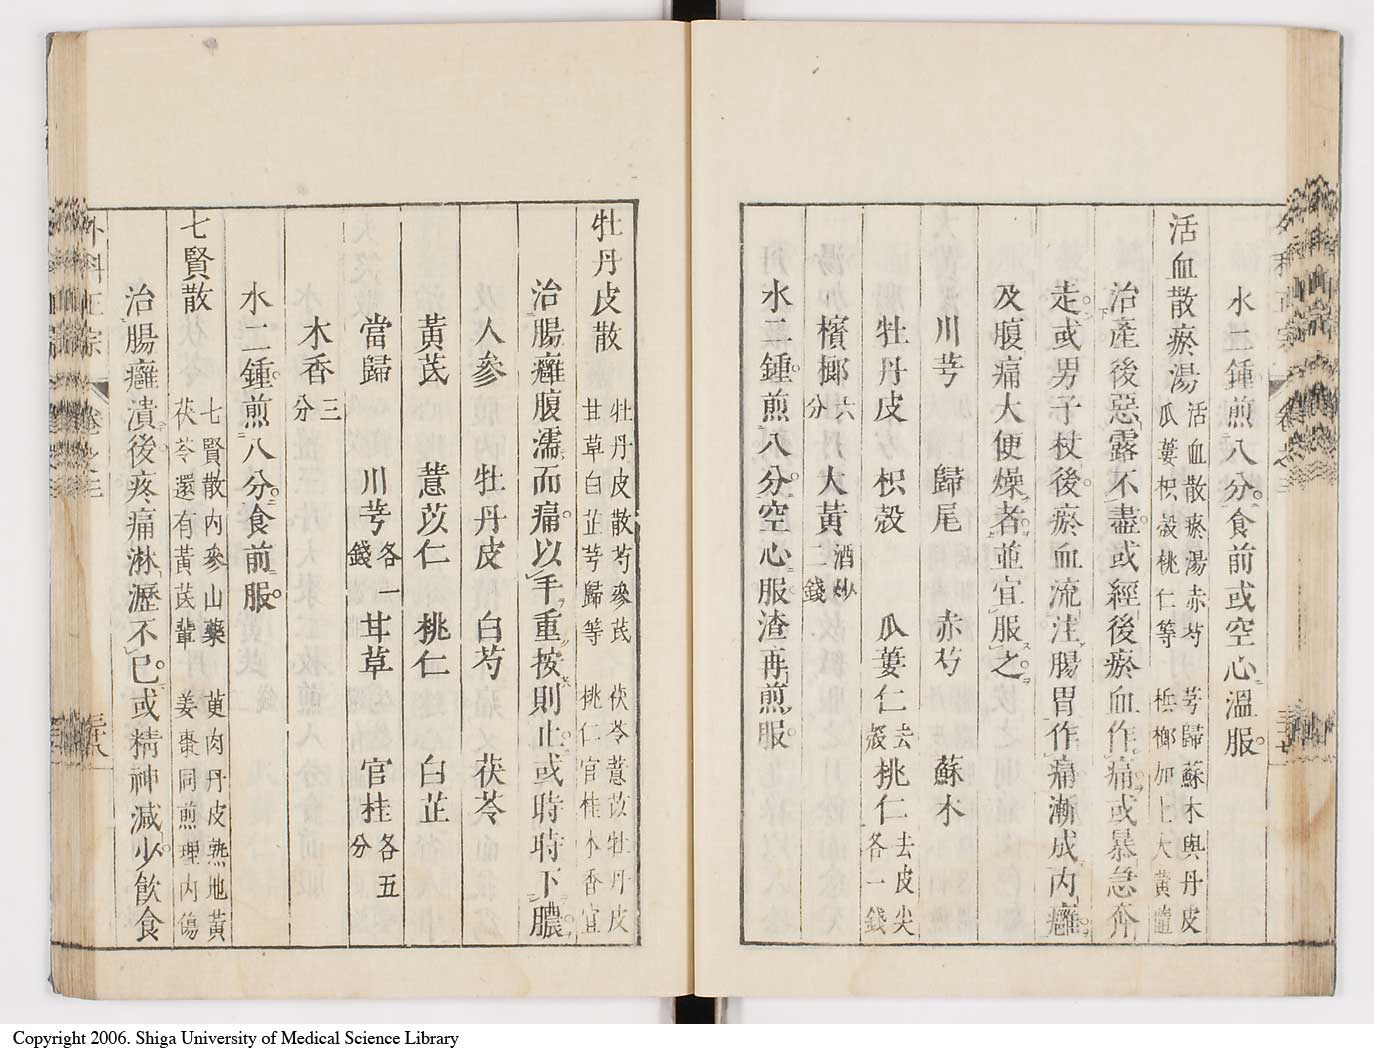 水二鍾煎八分食前或空心溫服
活血散瘀湯
活血散瘀湯赤芍 芎歸蘇木與丹皮
瓜蔞枳殼桃仁等 檳榔加上大黃隨
治產後惡露不盡或經後瘀血作痛或暴急奔
走或男子杖後瘀血流注腸胃作痛漸成內癰
及腹痛大便燥者並宜服之
川芎 歸尾 赤芍 蘇木
牡丹皮 枳殼 瓜蔞仁去殼 桃仁去皮尖各一錢
檳榔六分 大黃酒炒二錢
水二鍾煎八分空心服渣再煎服
牡丹皮散
牡丹皮散芍參芪 茯苓薏苡牡丹皮
甘草白芷芎歸等 桃仁官桂木香宜
治腸癰腹濡而痛以手重按則止或時時下膿
人參 牡丹皮 白芍 茯苓
黃芪 薏苡仁 桃仁 白芷
當歸 川芎各一錢 甘草 官桂各五分
木香三分
水二鍾煎八分食前服
七賢散
七賢散內參山藥 萸肉丹皮熟地黃
茯苓還有黃芪輩 姜棗同煎理內傷
治腸癰潰後疼痛淋瀝不已或精神減少飲食
外科正宗 卷之三 三十八
Copyright 2006. Shiga University of Medical Science Library